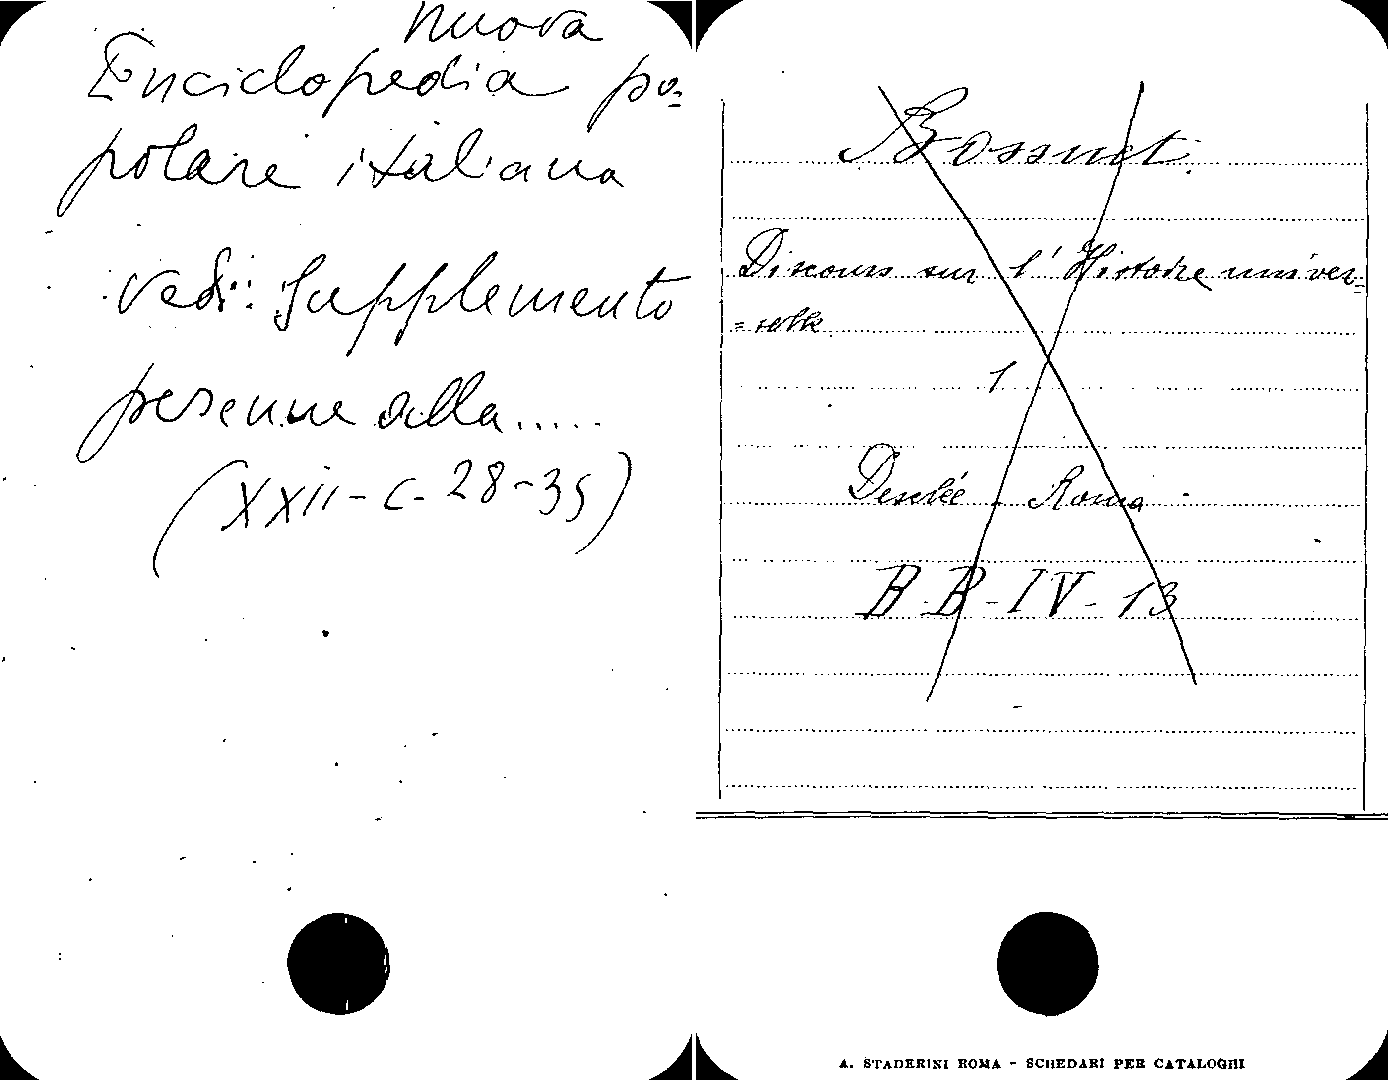 nuova
Enciclopedia po=
polare italiana
vedi: Supplemento
perenne alla.....
(XXII - C - 28-35)
Bossuet.
Discours sur l'Histoire univer=
=selle
1
Desclée - Roma -
B B - IV - 13
A. STADERINI ROMA - SCHEDARI PER CATALOGHI